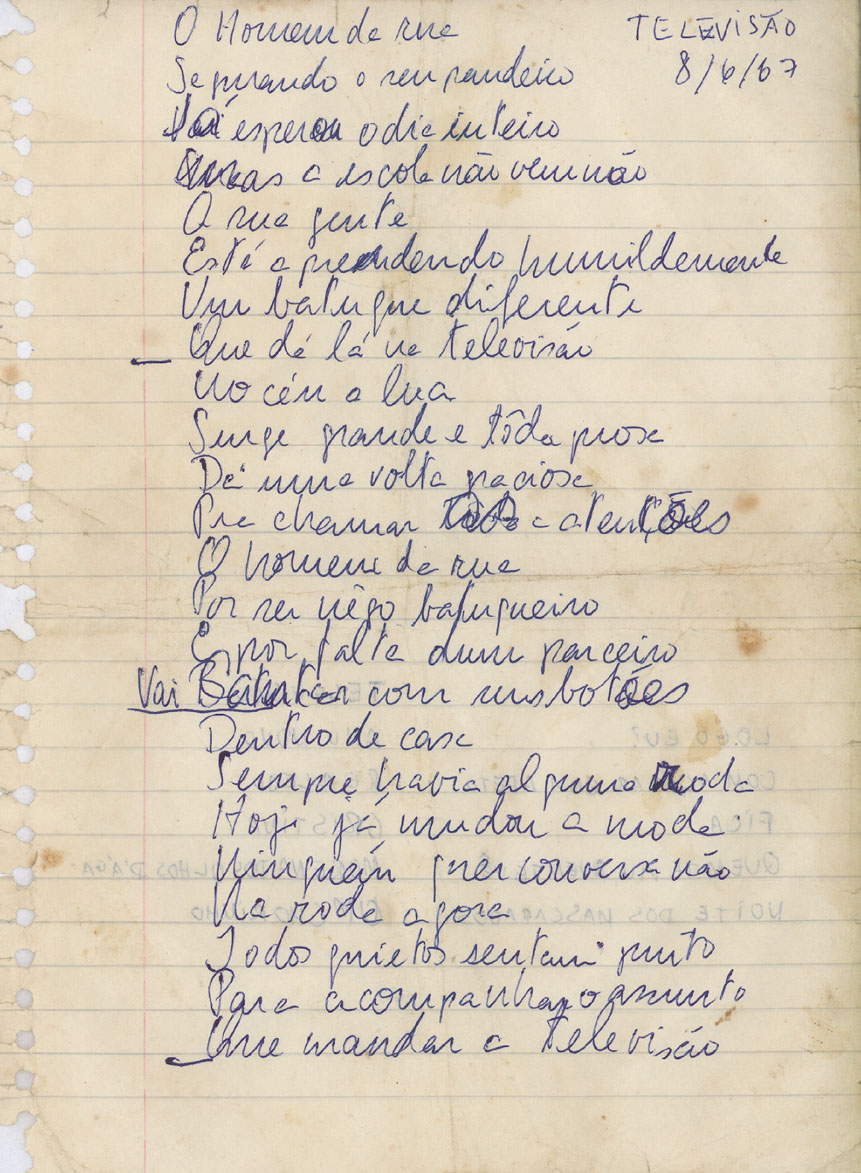 O Homem da rua
TELEVISÃO
8/6/67
Segurando o seu pandeiro
Já esperou o dia inteiro
Mas a escola não vem não
A rua gente
Está aprendendo humildemente
Um batuque diferente
Que dá lá na televisão
No céu a lua
Surge grande e tôda prosa
Dá uma volta graciosa
Pra chamar as atenções
O homem da rua
Por ser nêgo batuqueiro
E por falta dum parceiro
Vai Batucar com seus botões
Dentro de casa
Sempre havia alguma roda
Hoje já mudou a moda
Ninguém quer conversa não
Na roda agora
Todos quietos sentam junto
Para acompanhar o assunto
Que mandar a Televisão